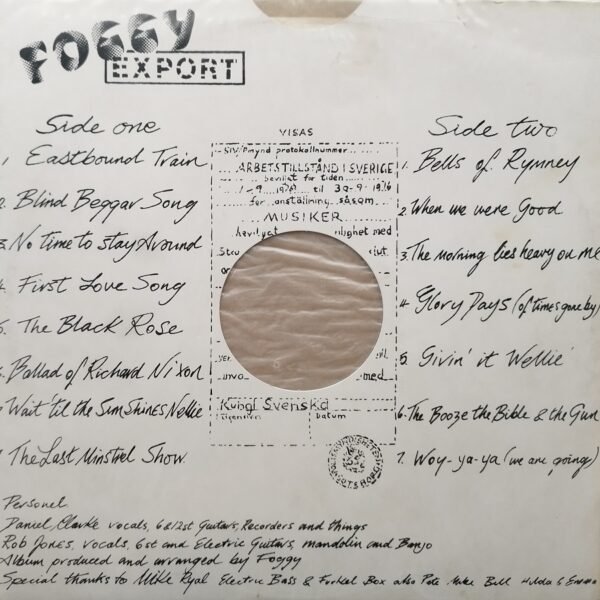 FOGGY
EXPORT
Side one
1, Eastbound Train
2. Blind Beggar Song
3. No time to stay Around
4. First Love Song
5. The Black Rose
6. Ballad of Richard Nixon
7 Wait 'til the Sun Shines Nellie
The Last Minstrel Show
VISAS
protokollnummer
ARBETSTILLSTÅND I SVERIGE
beviljat för tiden
1-9 1976 til 30-9-1976
för anställning såsom
MUSIKER
lighet med
med
Kungl Svensk
Datum
Side two
1. Bells of Rymney
2. When we were Good
3. The morning lies heavy on me
4. Glory Days (of times gone by)
5 Givin' it Wellie'
6. The Booze the Bible & the Gun
7. Woy-ya-ya (we are going)
Personel
Daniel, Clarke vocals, 6&12st Guitars, Recorders and things
Rob Jones, vocals, 6st and Electric Guitars, mandolin and Banjo
Album produced and arranged by Foggy
Special thanks to Mike Ryal Electric Bass & Box also Pete Mike Bill Hilda & Emma